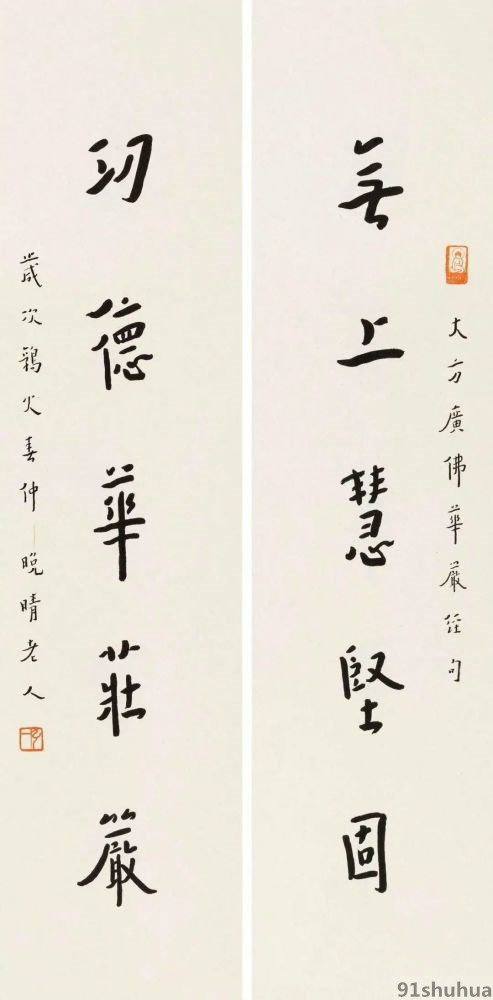 大方廣佛華嚴經句
無上慧堅固
功德華莊嚴
歲次鶉火春仲晚晴老人
91shuhua